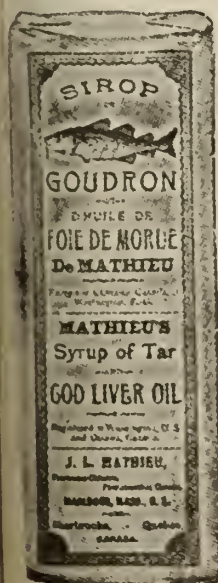 SIROP
DE
GOUDRON
D'HUILE DE
FOIE DE MORUE
De MATHIEU
MATHIEU'S
Syrup of Tar
COD LIVER OIL
J. L. MATHIEU,
MARLBORO, MASS., U. S.
Sherbrooke, Quebec,
CANADA.